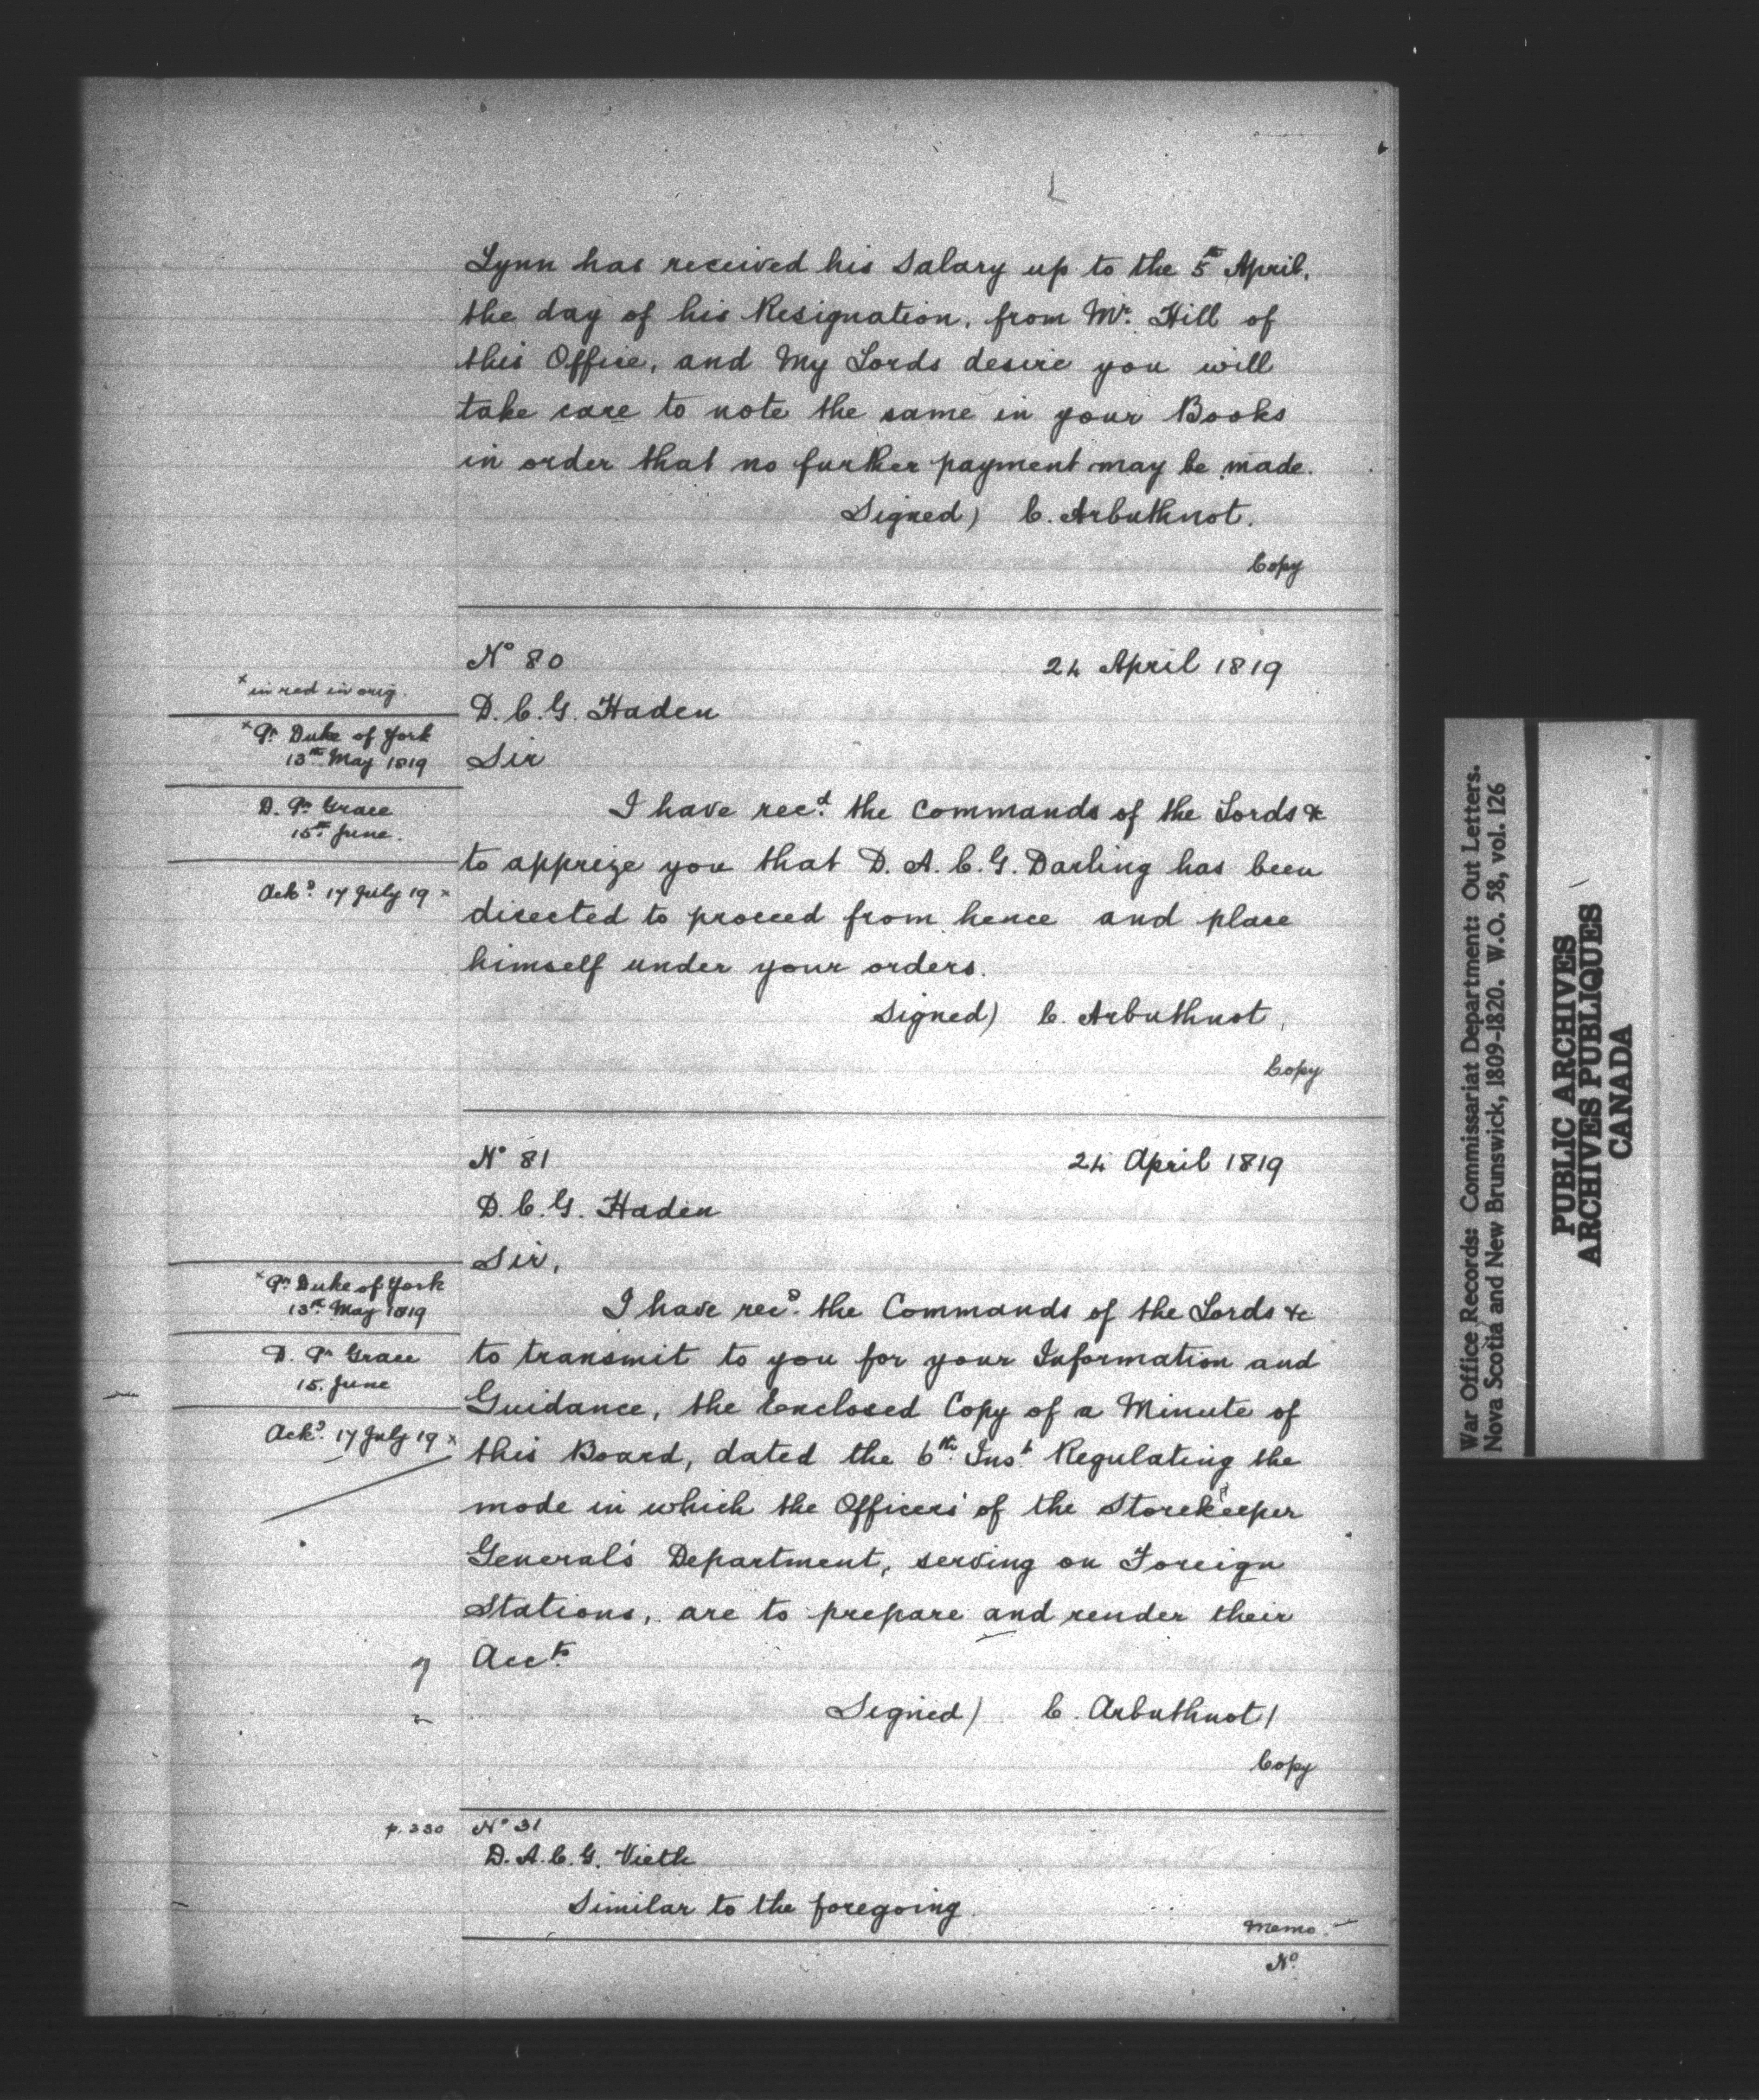 Lynn has received his Salary up to the 5th April,
the day of his Resignation, from Mr. Hill of
this Office, and My Lords desire you will
take care to note the same in your Books
in order that no further payment may be made.
Signed) C. Arbuthnot.
Copy
No 80
24 April 1819
x in red in orig.
D. C. G. Haden
x Pr Duke of York
13th May 1819
Sir
D. Pr Grace
15th June.
I have recd. the Commands of the Lords &c
to apprize you that D. A. C. G. Darling has been
Ackd. 17 July 19 x
directed to proceed from hence and place
himself under your orders.
Signed) C. Arbuthnot,
Copy
No 81
24 April 1819
D. C. G. Haden
Sir,
x Pr Duke of York
13th May 1819
I have recd. the Commands of the Lords &c
D. Pr Grace
15. June
to transmit to you for your Information and
Guidance, the Enclosed Copy of a Minute of
Ackd. 17 July 19 x
this Board, dated the 6th Inst. Regulating the
mode in which the Officers of the Storekeeper
General's Department, serving on Foreign
Stations, are to prepare and render their
Accts.
Signed) C. Arbuthnot)
Copy
p. 230
No 31
D. A. C. G. Vieth
Similar to the foregoing.
Memo.
No.
War Office Records: Commissariat Department: Out Letters.
Nova Scotia and New Brunswick, 1809-1820. W.O. 58, vol. 126
PUBLIC ARCHIVES
ARCHIVES PUBLIQUES
CANADA